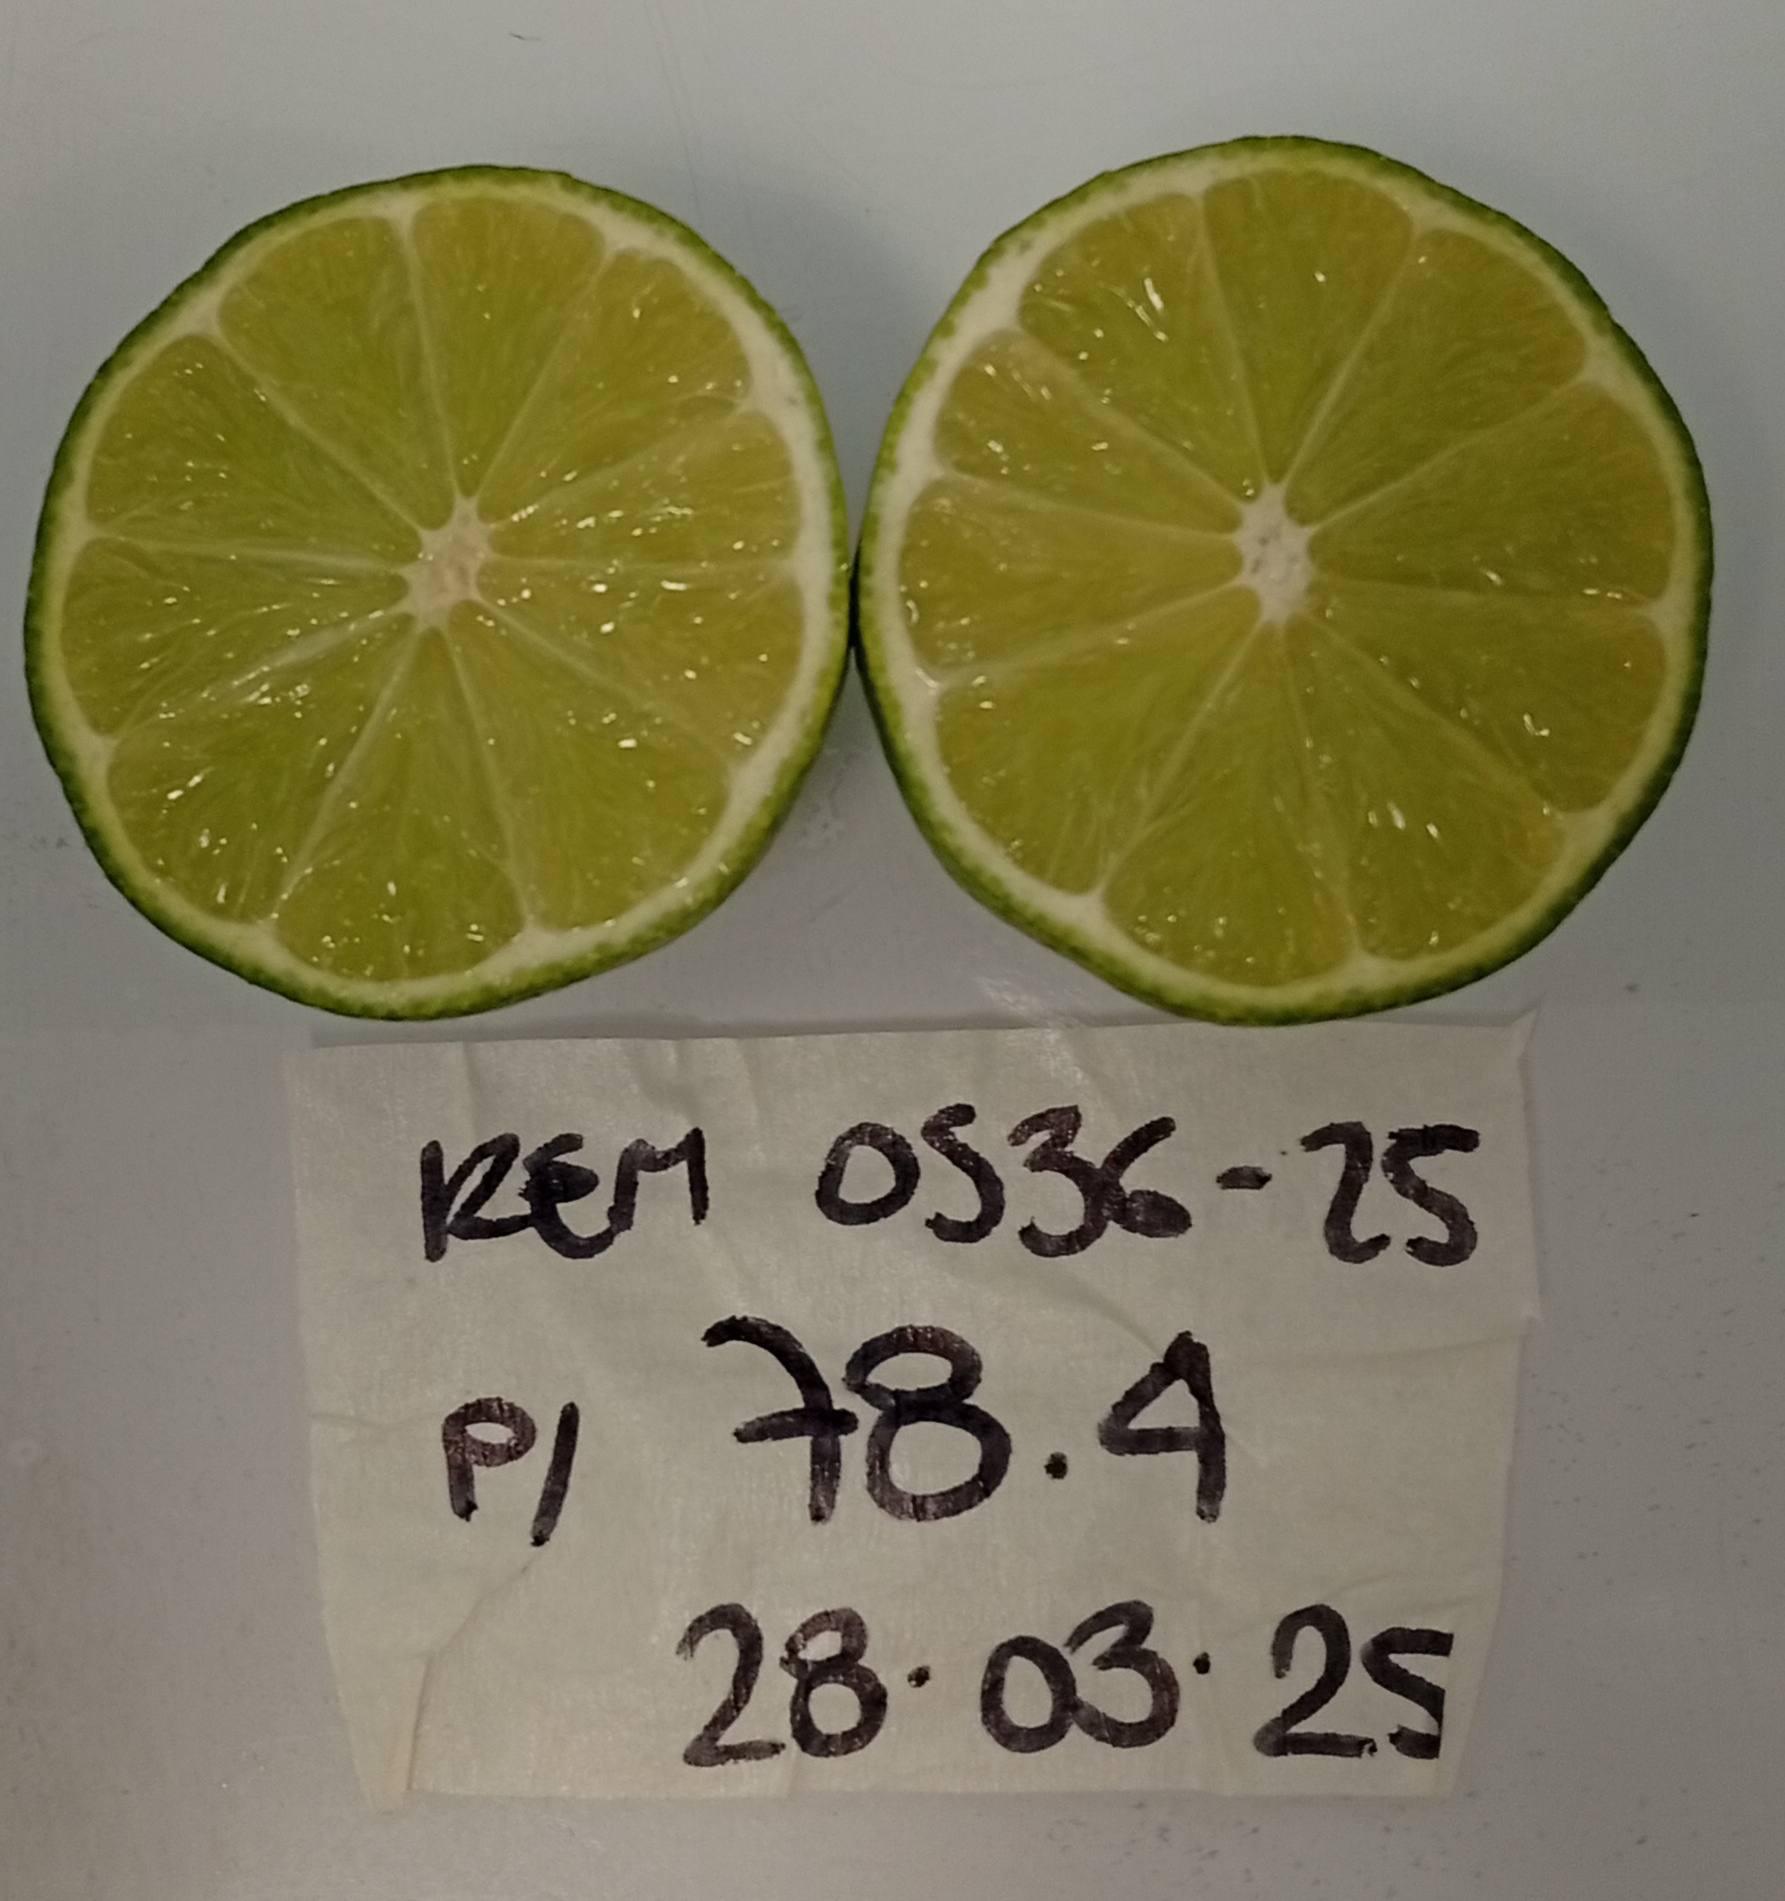 REM 0536-25
P/ 78.4
28.03.25